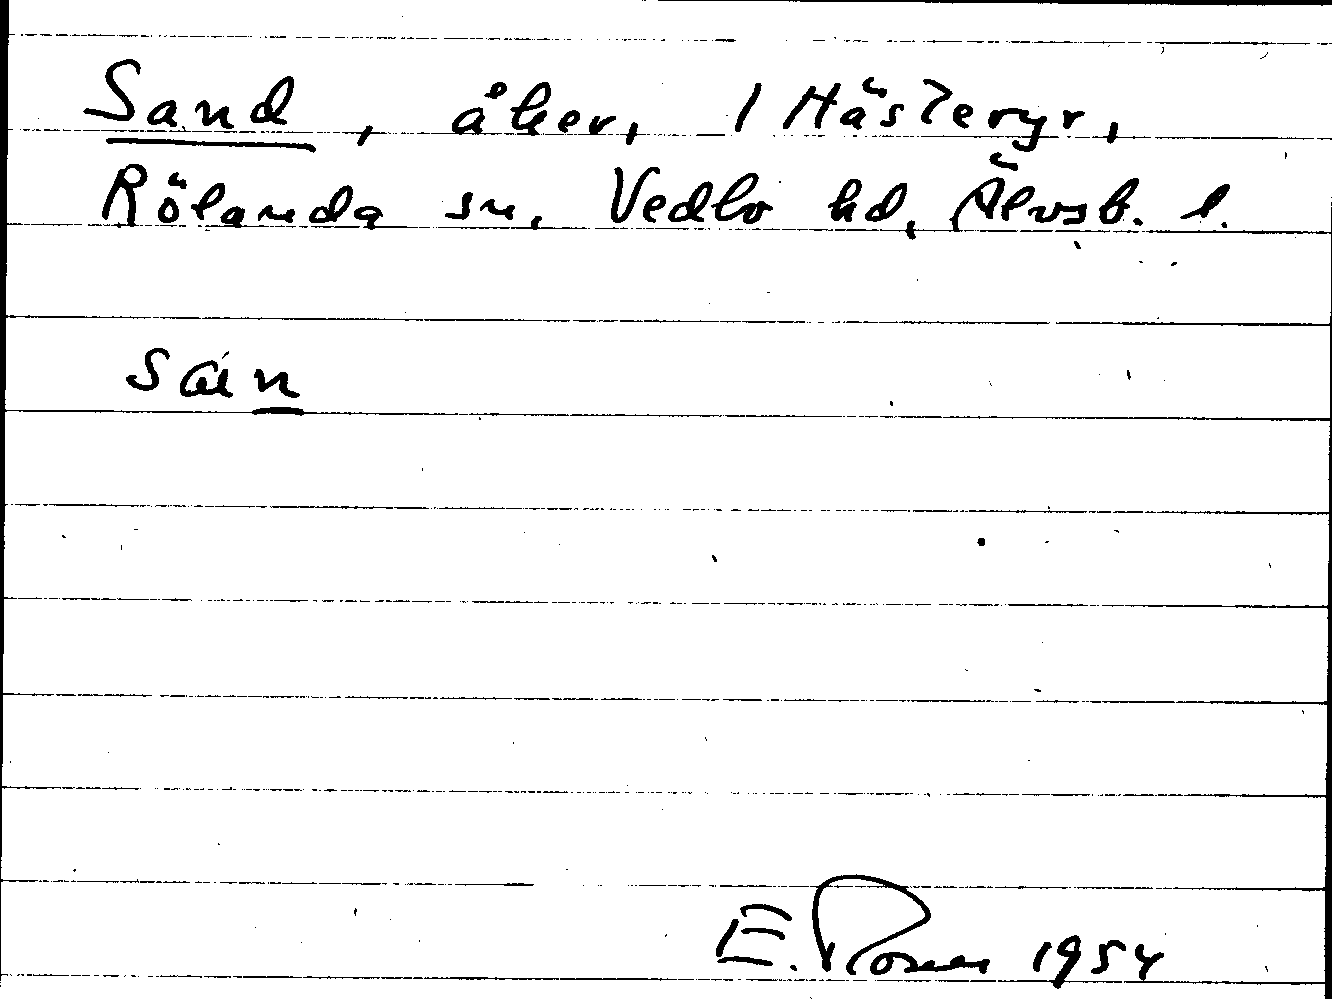 Sand, åker, 1 Hästeryr,
Rölanda sn. Vedbo hd, Älvsb. l.
san
E. Rosen 1954